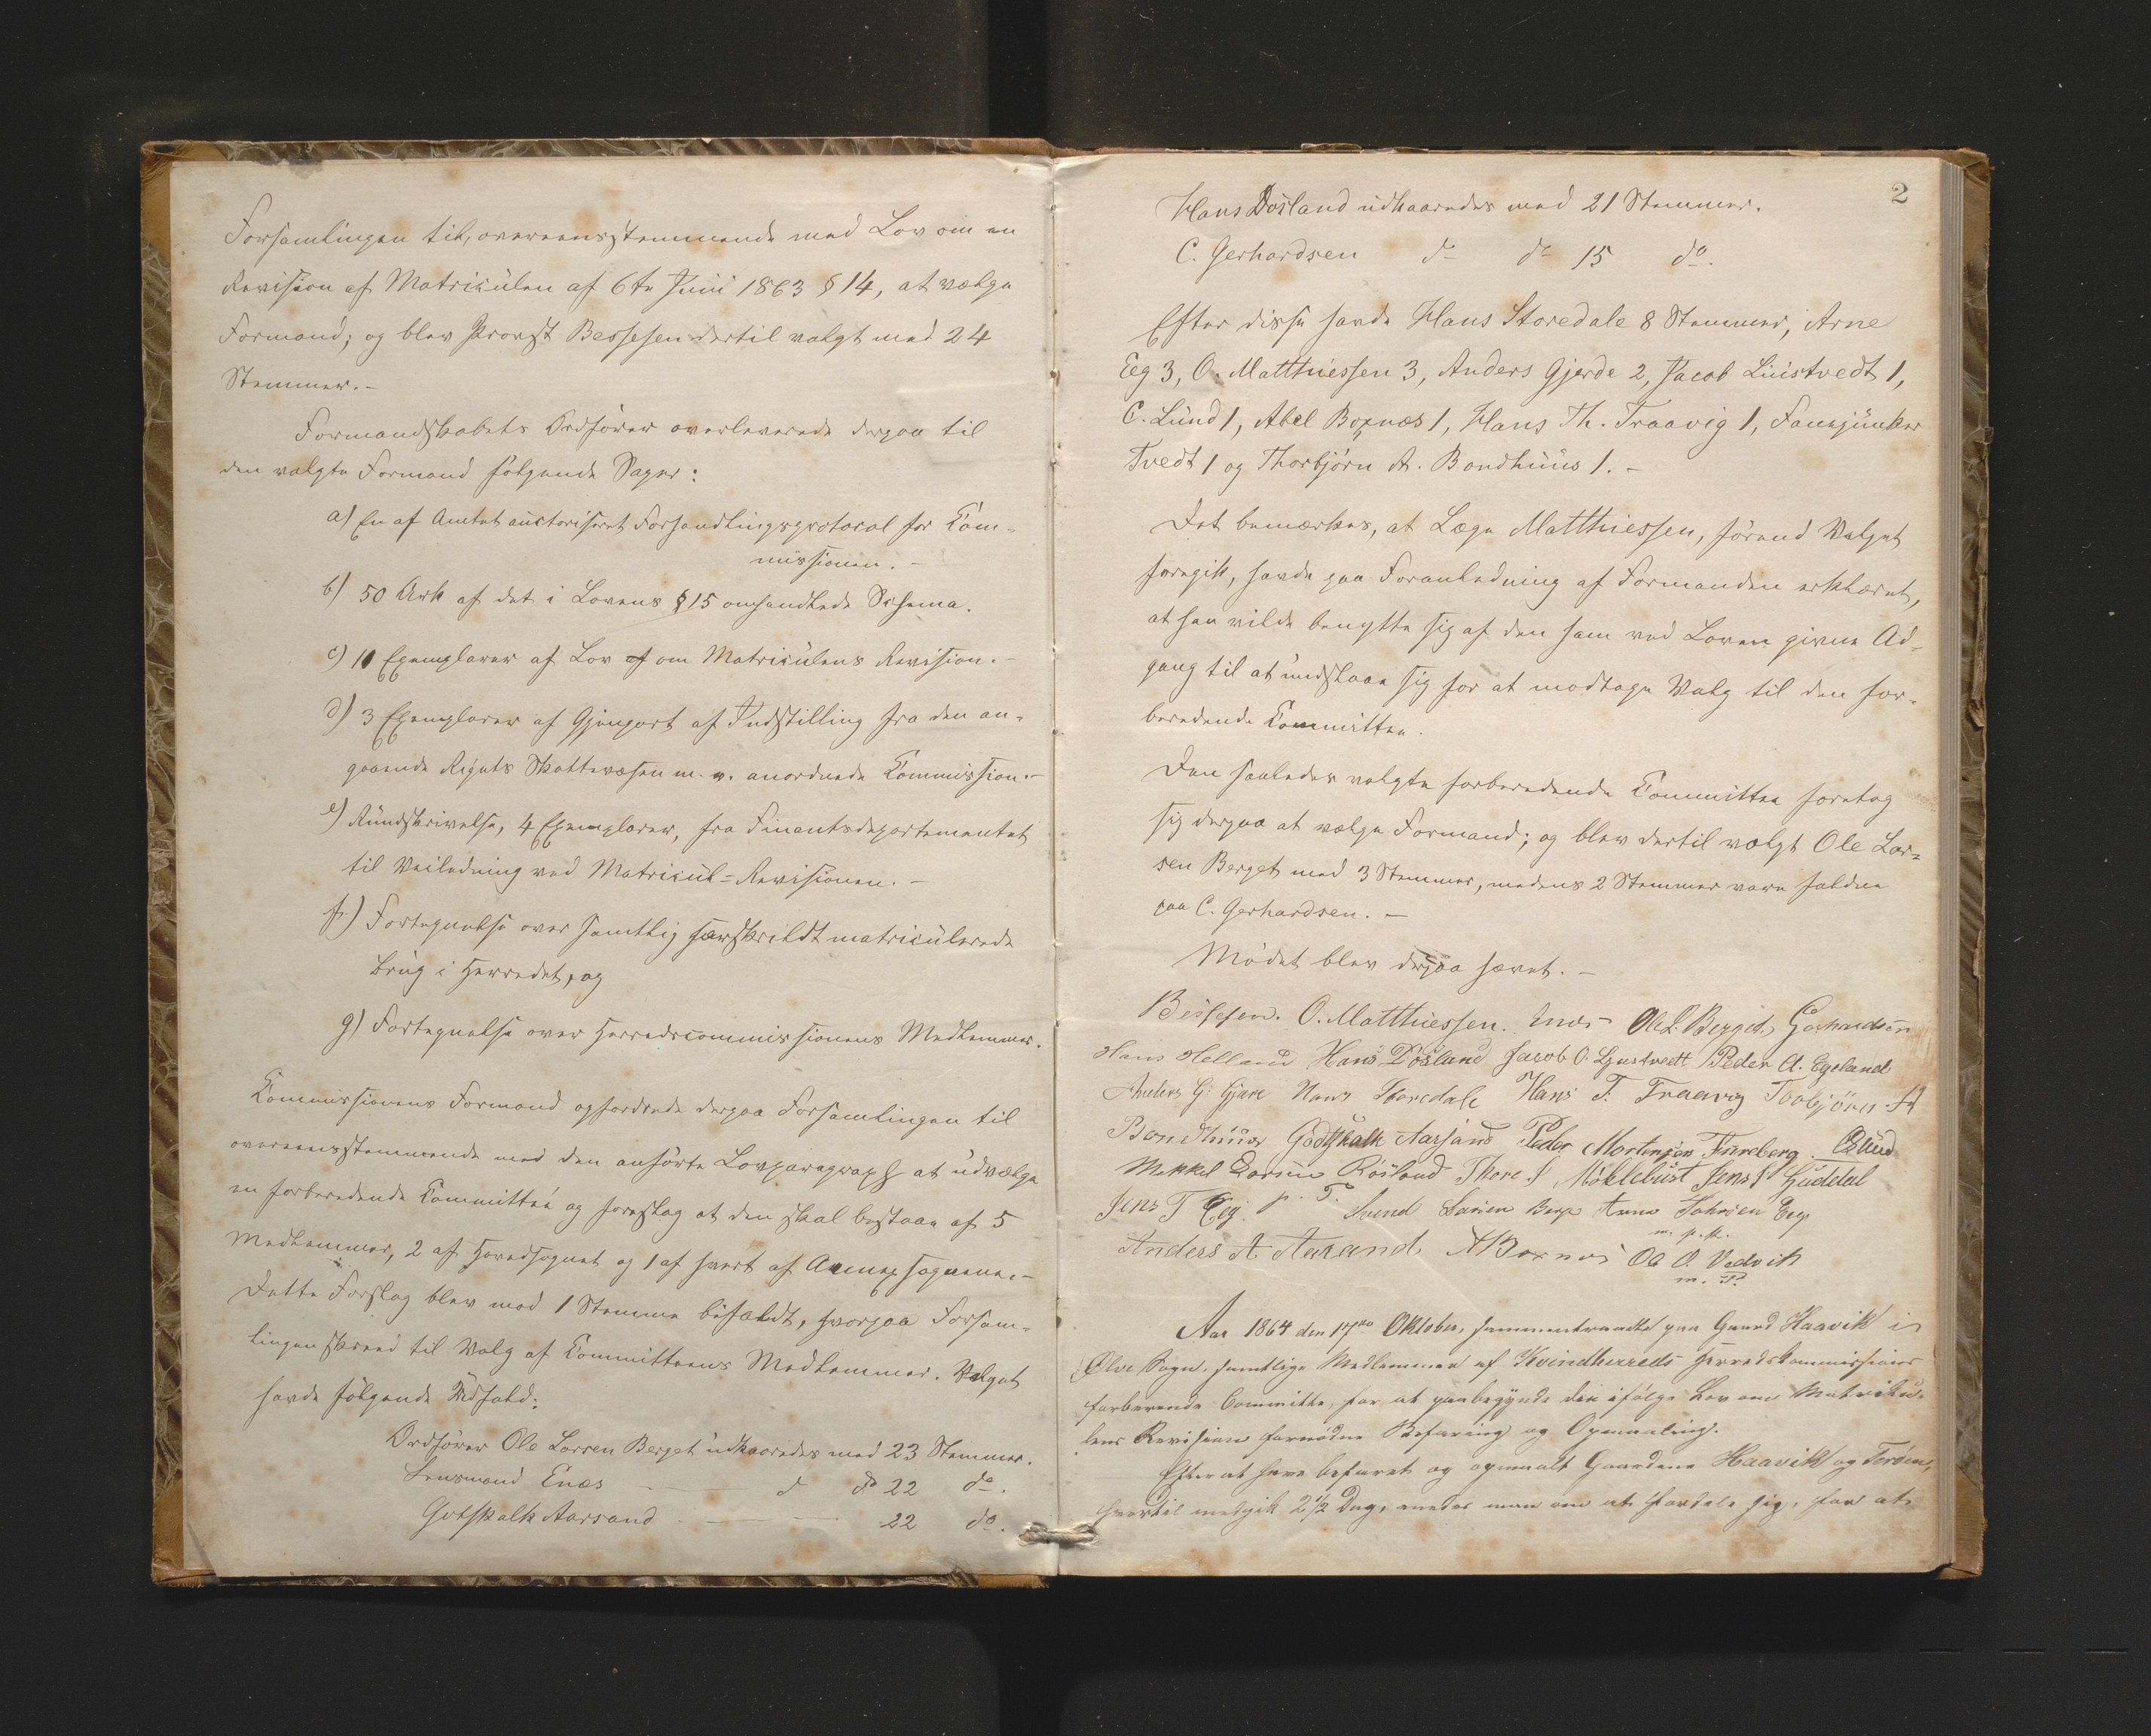 Forsamlingen til, overeensstemmende med Lov om en
Revision af Matriculen af 6te Juni 1863 § 14, at vælge
Formand; og blev Provst Bessesen dertil valgt med 24
Stemmer.-
Formandskabets Ordfører overleverede derpaa til
den valgte Formand følgende Sager:
a) En af Amtet auctoriseret Forhandlingsprotocol for Com-
missionen.-
b) 50 Ark af det i Lovens § 15 omhandlede Schema.
c) 11 Exemplarer af Lov om Matriculens Revision.-
d) 3 Exemplarer af Gjenpart af Indstilling fra den an-
gaaende Rigets Skattevæsen m. v. anordnede Commission.-
e) Rundskrivelse, 4 Exemplarer, fra Finantsdepartementet
til Veiledning ved Matricul-Revisionen.-
f) Fortegnelse over samtlig særskildt matriculerede
Brug i Herredet, og
g) Fortegnelse over Herredscommissionens Medlemmer.
Commissionens Formand opfordrede derpaa Forsamlingen til
overeensstemmende med den anførte Lovparagraph at udvælge
en forberedende Committee og foreslog at den skal bestaae af 5
Medlemmer, 2 af Hovedsognet og 1 af hvert af Annexsognene.-
Dette Forslag blev mod 1 Stemme bifaldt, hvorpaa Forsam-
lingen skreed til Valg af Committeens Medlemmer. Valget
havde følgende Udfald:
Ordfører Ole Larsen Berget udkaaredes med 23 Stemmer.
Lensmand Enæs - d do 22 do.
Gotskalk Aarsand - 22 do.
2
Hans Døsland udkaaredes med 21 Stemmer.
C. Gerhardsen do do 15 do.
Efter disse havde Hans Storedale 8 Stemmer, Arne
Eeg 3, O. Matthiessen 3, Anders Gjerde 2, Jacob Liustvedt 1,
C. Lund 1, Abel Boxnæs 1, Hans Th. Traavig 1, Fanejunker
Tvedt 1 og Thorbjørn A. Bondhuus 1.-
Det bemærkes, at Læge Matthiessen, førend Valget
foregik, havde paa Foranledning af Formanden erklæret,
at han vilde benytte sig af den ham ved Loven givne Ad-
gang til at undslaae sig for at modtage Valg til den for-
beredende Committee.
Den saaledes valgte forberedende Committee foretog
sig derpaa at vælge Formand; og blev dertil valgt Ole Lar-
sen Berget med 3 Stemmer, medens 2 Stemmer vare faldne
paa C. Gerhardsen.-
Mødet blev derpaa hævet.-
Bessesen. O. Matthiessen. Enæs Ole L. Berget. Gerhardsen
Hans Helland Hans Døsland Jacob O. Ljustvedt Peder A. Egeland
Anders G. Gjære Hans Storedale Hans T. Traavig Torbjörn A
Bondhuus Godtskalk Aarsand Peder Mortensen Finneberg. CLund
Mekkel Larsen Røsland Thore J Møklebust Jens J Guddal
Jens T Eeg. p. T. Svend Larsen Berge Arne Johnsen Eeg
m. p. p.
Anders A. Aarand. ABoxnæs Ole O. Vedvik
m. P.
Aar 1864 den 17de Oktober, sammentraadte paa Gaard Haavik i
Ølve Sogn, samtlige Medlemmer af Kvindherreds Herredskommissions
forberende Committe, for at paabegynde den ifølge Lov om Matriku-
lens Revision fornødne Befaring og Opmaaling.
Efter at have befaret og opmaalt Gaardene Haavik og Terøen,
hvortil medgik 2 1/2 Dag, enedes man om at fordele sig, for at